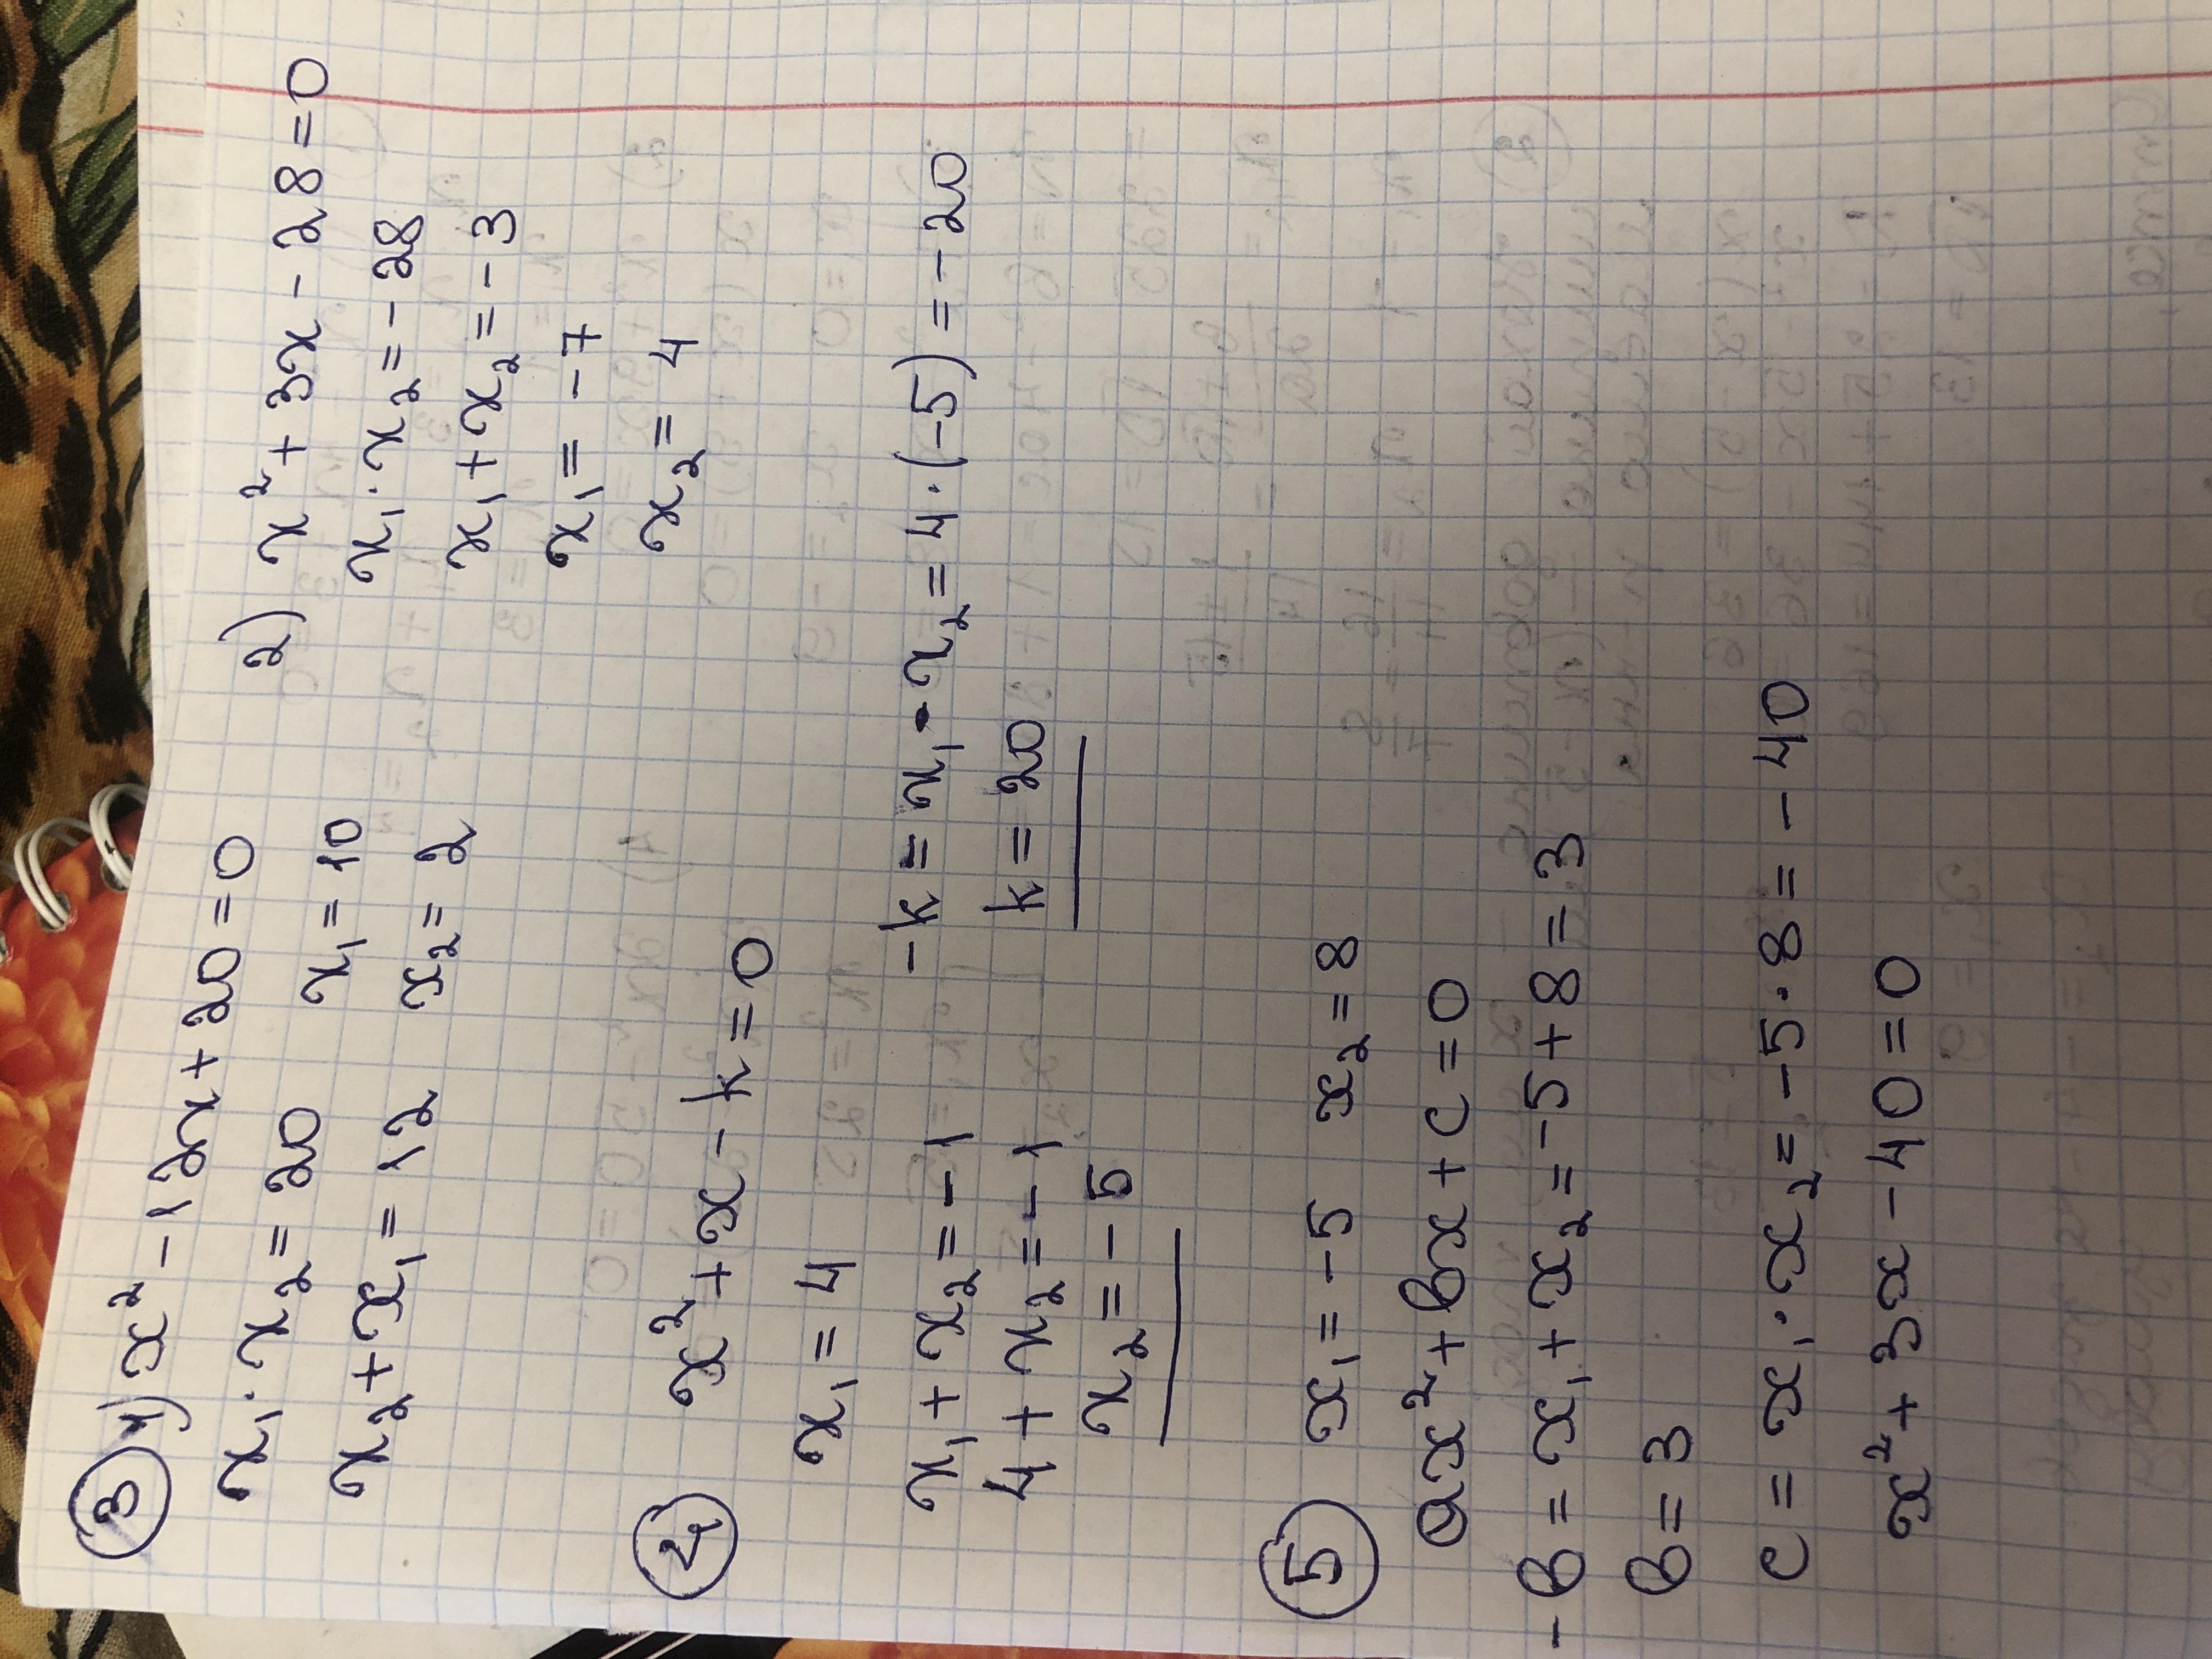 ③ 1) x² - 12x + 20 = 0
x₁ · x₂ = 20
x₂ + x₁ = 12
x₁ = 10
x₂ = 2
2) x² + 3x - 28 = 0
x₁ · x₂ = -28
x₁ + x₂ = -3
x₁ = -7
x₂ = 4
④ x² + x - k = 0
x₁ = 4
x₁ + x₂ = -1
4 + x₂ = -1
x₂ = -5
-k = x₁ · x₂ = 4 · (-5) = -20
k = 20
⑤ x₁ = -5 x₂ = 8
ax² + bx + c = 0
-b = x₁ + x₂ = -5 + 8 = 3
b = 3
c = x₁ · x₂ = -5 · 8 = -40
x² + 3x - 40 = 0